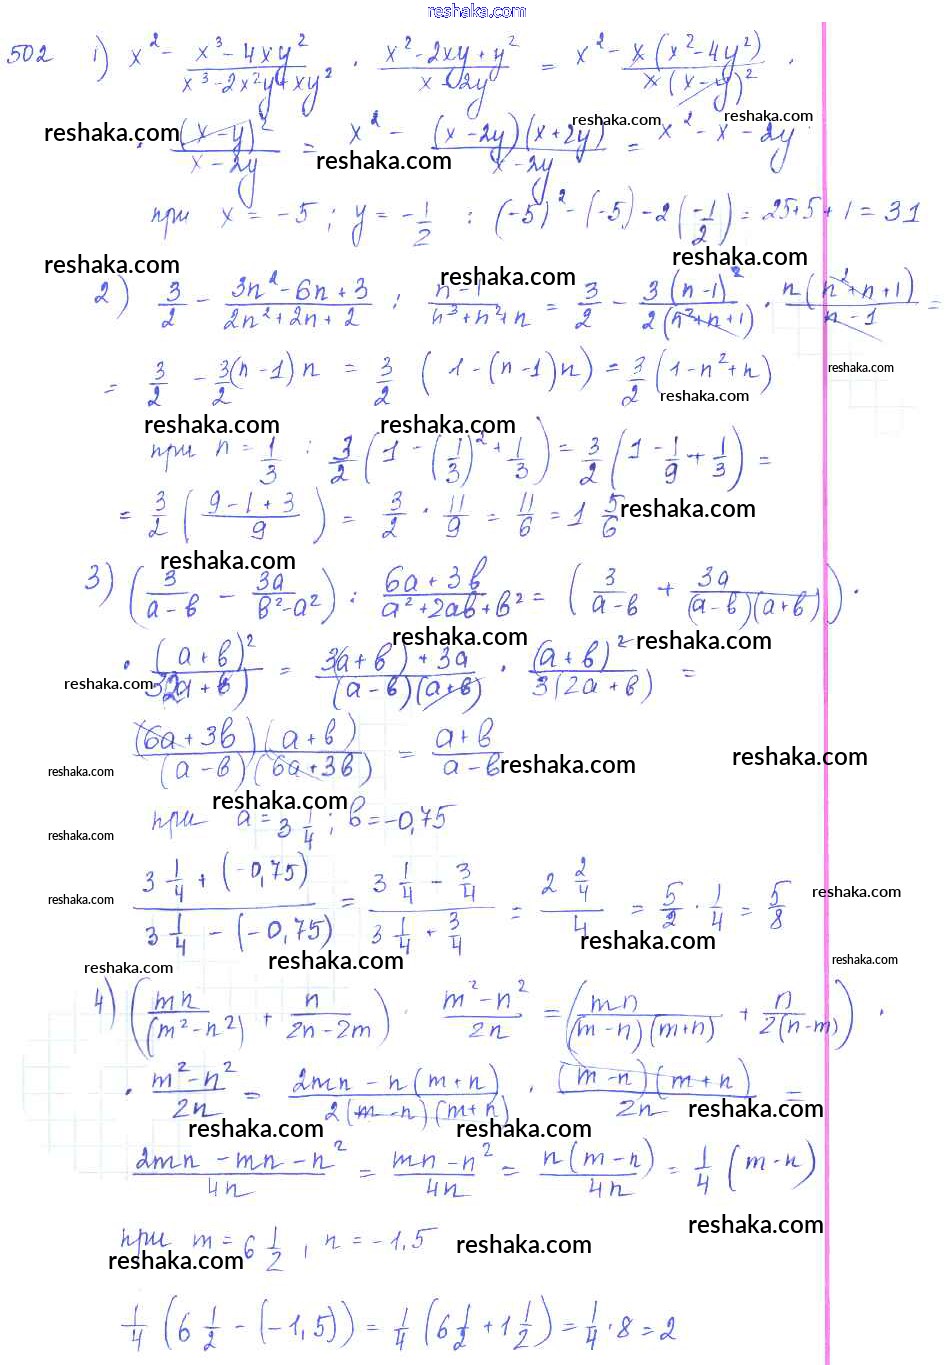 reshaka.com
502 1) x² - (x³ - 4xy²)/(x³ - 2x²y + xy²) · (x² - 2xy + y²)/(x - 2y) = x² - x(x² - 4y²)/(x(x - y)²) ·
reshaka.com reshaka.com reshaka.com
· (x - y)²/(x - 2y) = x² - (x - 2y)(x + 2y)/(x - 2y) = x² - x - 2y
reshaka.com
при x = -5; y = -1/2 : (-5)² - (-5) - 2(-1/2) = 25+5+1 = 31
reshaka.com reshaka.com reshaka.com
2) 3/2 - (3n² - 6n + 3)/(2n² + 2n + 2) : (n - 1)/(n³ + n² + n) = 3/2 - 3(n - 1)²/(2(n² + n + 1)) · n(n² + n + 1)/(n - 1) =
= 3/2 - 3/2(n - 1)n = 3/2 (1 - (n - 1)n) = 3/2 (1 - n² + n)
reshaka.com reshaka.com
reshaka.com reshaka.com
при n = 1/3 : 3/2 (1 - (1/3)² + 1/3) = 3/2 (1 - 1/9 + 1/3) =
= 3/2 ((9 - 1 + 3)/9) = 3/2 · 11/9 = 11/6 = 1 5/6
reshaka.com
reshaka.com
3) (3/(a - b) - 3a/(b² - a²)) : (6a + 3b)/(a² + 2ab + b²) = (3/(a - b) + 3a/((a - b)(a + b))) ·
reshaka.com reshaka.com
· (a + b)²/(3(2a + b)) = (3(a + b) + 3a)/((a - b)(a + b)) · (a + b)²/(3(2a + b)) =
reshaka.com
(6a + 3b)(a + b)/((a - b)(6a + 3b)) = (a + b)/(a - b)
reshaka.com reshaka.com reshaka.com
reshaka.com
при a = 3 1/4; b = -0,75
reshaka.com
(3 1/4 + (-0,75))/(3 1/4 - (-0,75)) = (3 1/4 - 3/4)/(3 1/4 + 3/4) = (2 2/4)/4 = 5/2 · 1/4 = 5/8
reshaka.com reshaka.com
reshaka.com reshaka.com
reshaka.com reshaka.com
4) (mn/(m² - n²) + n/(2n - 2m)) · (m² - n²)/2n = (mn/((m - n)(m + n)) + n/(2(n - m))) ·
· (m² - n²)/2n = (2mn - n(m + n))/(2(m - n)(m + n)) · (m - n)(m + n)/2n =
reshaka.com
reshaka.com reshaka.com
(2mn - mn - n²)/4n = (mn - n²)/4n = n(m - n)/4n = 1/4 (m - n)
reshaka.com
при m = 6 1/2, n = -1,5
reshaka.com reshaka.com
1/4 (6 1/2 - (-1,5)) = 1/4 (6 1/2 + 1 1/2) = 1/4 · 8 = 2